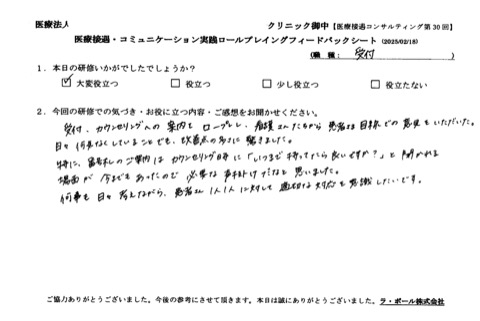 医療法人 クリニック御中【医療接遇コンサルティング第30回】
医療接遇・コミュニケーション実践ロールプレイングフィードバックシート (2025/02/18)
(職 種: 受付 )
1. 本日の研修いかがでしたでしょうか?
☑ 大変役立つ □ 役立つ □ 少し役立つ □ 役立たない
2. 今回の研修での気づき・お役に立つ内容・ご感想をお聞かせください。
受付、カウンセリングへの案内をロープレし、看護さんたちから患者さま目線での意見をいただいた。
日々何気なくしていることでも、改善点の多さに驚きました。
特に、番号札のご案内はカウンセリング時に「いつまで持ってたら良いですか?」と聞かれる
場面が今までもあったので必要な声掛けだなと思いました。
何事も日々考えながら、患者さん1人1人に対して適切な対応を意識したいです。
ご協力ありがとうございました。今後の参考にさせて頂きます。本日は誠にありがとうございました。ラ・ポール株式会社